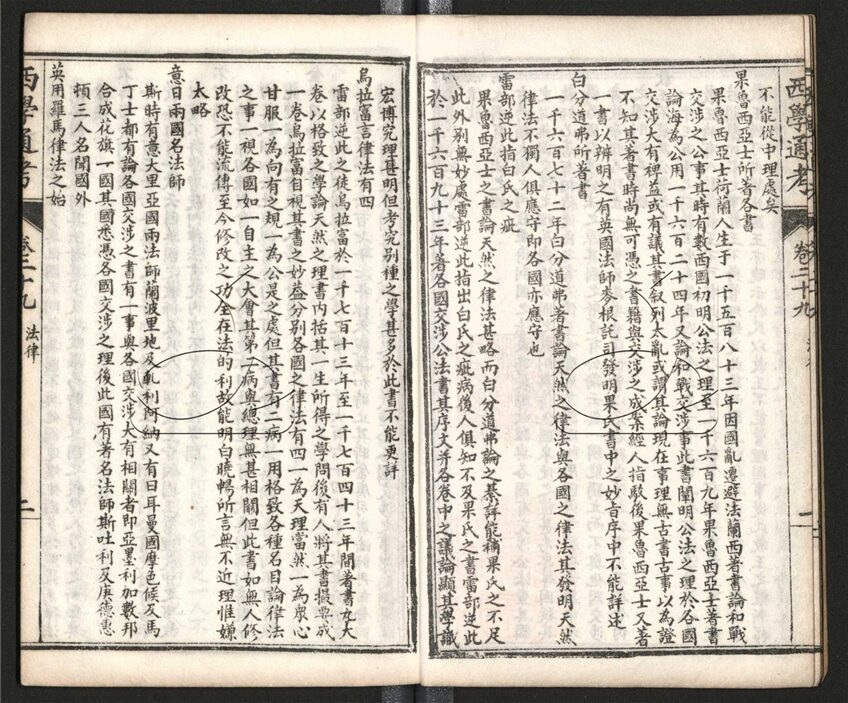 西學通考
卷二十九
法律
一
不能從中理處矣
果魯西亞士所著各書
果魯西亞士荷蘭人生于一千五百八十三年因國亂遷避法蘭西著書論和戰
交涉之公事其時有數西國初明公法之理至一千六百九年果魯西亞士著書
論海為公用一千六百二十四年又論和戰交涉事此書闡明公法之理於各國
交涉大有裨益或有議其書叙列太亂或謂其論現在事理無古書古事以為證
不知其著書時尚無可憑之書籍與交涉之成案經人指敵後果魯西亞士又著
一書以辨明之有英國法師麥根託司發明果氏書中之妙旨序中不能詳述
白分道弗所著書
一千六百七十二年白分道弗著書論天然之律法與各國之律法其發明天然
律法不獨人俱應守即各國亦應守也
雷部逆此指白氏之疵
果魯西亞士之書論天然之律法甚略而白分道弗論之綦詳能補果氏之不足
此外別無妙處雷部逆此指出白氏之疵病後人俱知不及果氏之書雷部逆此
於一千六百九十三年著各國交涉公法書其序文并各卷中之議論顯其學識
宏博究理甚明但考究別種之學甚多於此書不能更詳
烏拉富言律法有四
雷部逆此之徒烏拉富於一千七百十三年至一千七百四十三年間著書九大
卷以格致之學論天然之理書內括其一生所得之學問後有人將其書撮要成
一卷烏拉富自視其書之妙益分別各國之律法有四一為天理當然一為眾心
甘服一為向有之規一為公是之處但其書有二病一用格致各種名目論律法
之事一視各國如一自主之大會其第二病與總理無甚相關但此書如無人修
改恐不能流傳至今修改之功全在法的利故能明白曉暢所言無不近理惟嫌
太略
意日兩國名法師
斯時有意大里亞國兩法師蘭波里地及軋利阿納又有日耳曼國摩色候及馬
丁士都有論各國交涉之書有一事與各國交涉大有相關者即亞墨利加數邦
合成花旗一國其國悉憑各國交涉之理後此國有著名法師斯吐利及庚德惠
頓三人名聞國外
英用羅馬律法之始
西學通考
卷二十九
法律
二